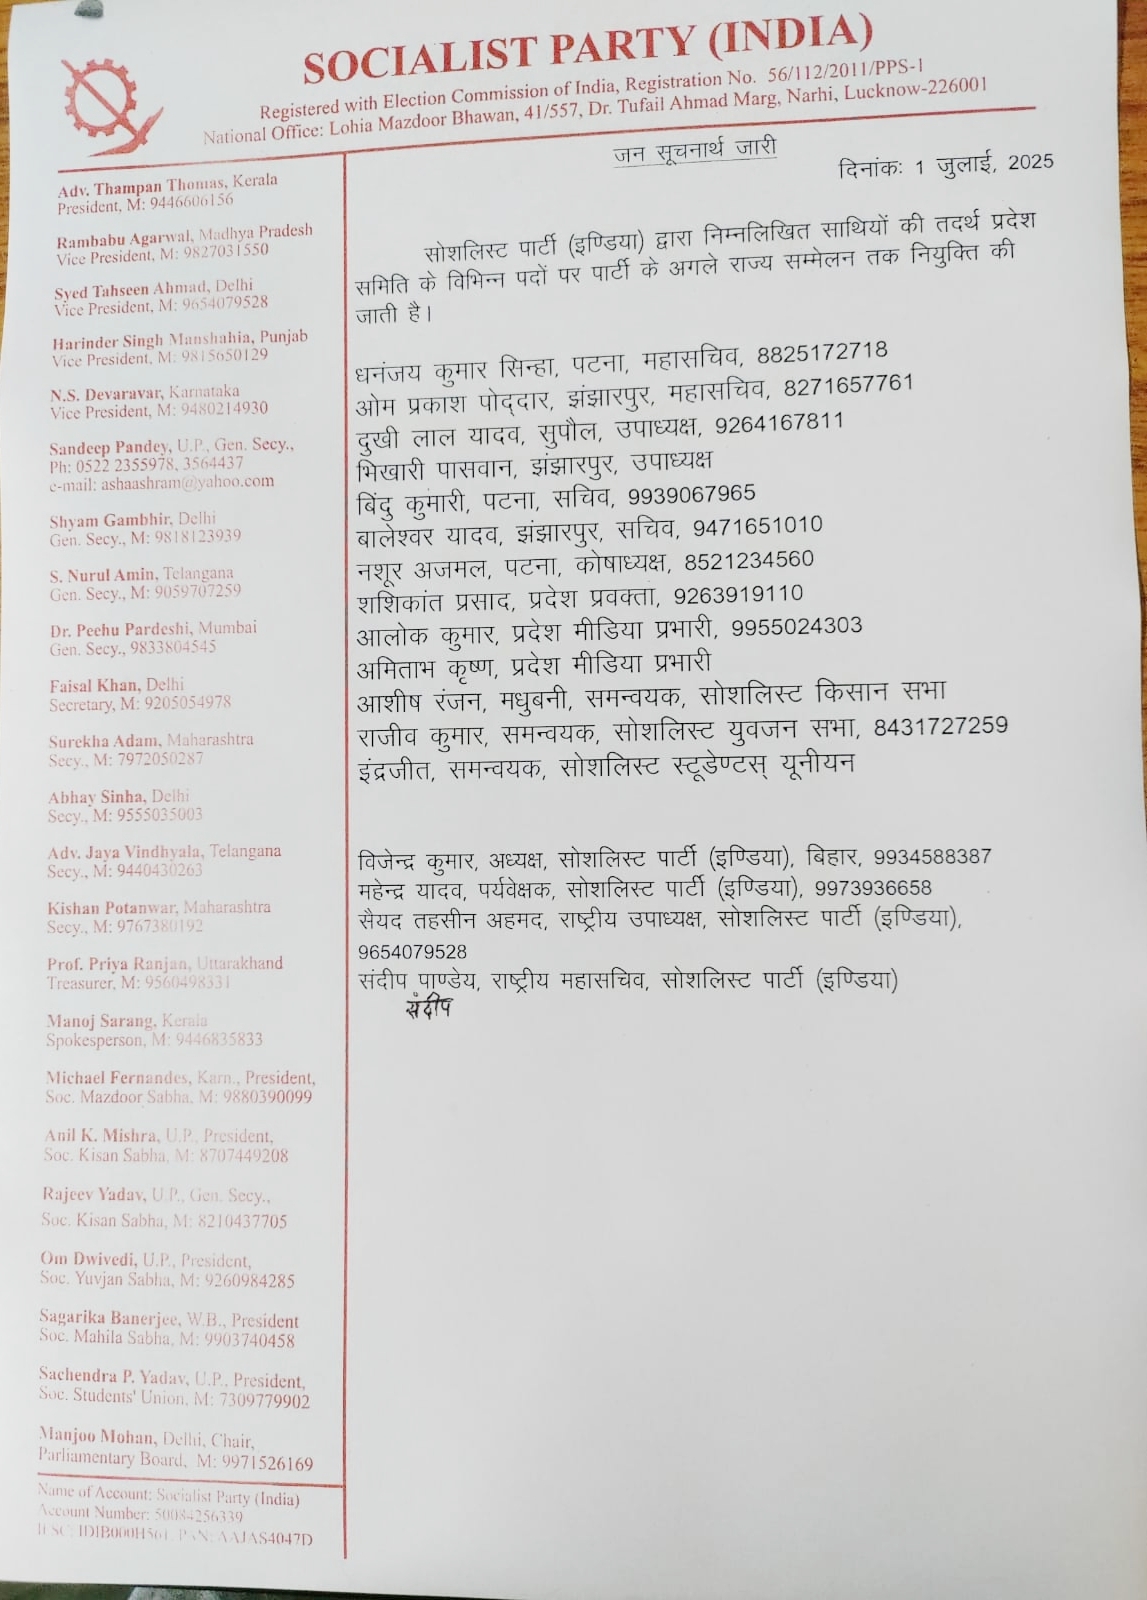 SOCIALIST PARTY (INDIA)
Registered with Election Commission of India, Registration No. 56/112/2011/PPS-1
National Office: Lohia Mazdoor Bhawan, 41/557, Dr. Tufail Ahmad Marg, Narhi, Lucknow-226001
Adv. Thampan Thomas, Kerala
President, M: 9446606156
Rambabu Agarwal, Madhya Pradesh
Vice President, M: 9827031550
Syed Tahseen Ahmad, Delhi
Vice President, M: 9654079528
Harinder Singh Manshahia, Punjab
Vice President, M: 9815650129
N.S. Devaravar, Karnataka
Vice President, M: 9480214930
Sandeep Pandey, U.P., Gen. Secy.,
Ph: 0522 2355978, 3564437
e-mail: ashaashram@yahoo.com
Shyam Gambhir, Delhi
Gen. Secy., M: 9818123939
S. Nurul Amin, Telangana
Gen. Secy., M: 9059707259
Dr. Peehu Pardeshi, Mumbai
Gen. Secy., 9833804545
Faisal Khan, Delhi
Secretary, M: 9205054978
Surekha Adam, Maharashtra
Secy., M: 7972050287
Abhay Sinha, Delhi
Secy., M: 9555035003
Adv. Jaya Vindhyala, Telangana
Secy., M: 9440430263
Kishan Potanwar, Maharashtra
Secy., M: 9767380192
Prof. Priya Ranjan, Uttarakhand
Treasurer, M: 9560498331
Manoj Sarang, Kerala
Spokesperson, M: 9446835833
Michael Fernandes, Karn., President,
Soc. Mazdoor Sabha, M: 9880390099
Anil K. Mishra, U.P., President,
Soc. Kisan Sabha, M: 8707449208
Rajeev Yadav, U.P., Gen. Secy.,
Soc. Kisan Sabha, M: 8210437705
Om Dwivedi, U.P., President,
Soc. Yuvjan Sabha, M: 9260984285
Sagarika Banerjee, W.B., President
Soc. Mahila Sabha, M: 9903740458
Sachendra P. Yadav, U.P., President,
Soc. Students' Union, M: 7309779902
Manjoo Mohan, Delhi, Chair,
Parliamentary Board, M: 9971526169
Name of Account: Socialist Party (India)
Account Number: 50084256339
IFSC: IDIB000H561, PAN: AAJAS4047D
जन सूचनार्थ जारी
दिनांकः 1 जुलाई, 2025
सोशलिस्ट पार्टी (इण्डिया) द्वारा निम्नलिखित साथियों की तदर्थ प्रदेश
समिति के विभिन्न पदों पर पार्टी के अगले राज्य सम्मेलन तक नियुक्ति की
जाती है।
धनंजय कुमार सिन्हा, पटना, महासचिव, 8825172718
ओम प्रकाश पोद्दार, झंझारपुर, महासचिव, 8271657761
दुखी लाल यादव, सुपौल, उपाध्यक्ष, 9264167811
भिखारी पासवान, झंझारपुर, उपाध्यक्ष
बिंदु कुमारी, पटना, सचिव, 9939067965
बालेश्वर यादव, झंझारपुर, सचिव, 9471651010
नशूर अजमल, पटना, कोषाध्यक्ष, 8521234560
शशिकांत प्रसाद, प्रदेश प्रवक्ता, 9263919110
आलोक कुमार, प्रदेश मीडिया प्रभारी, 9955024303
अमिताभ कृष्ण, प्रदेश मीडिया प्रभारी
आशीष रंजन, मधुबनी, समन्वयक, सोशलिस्ट किसान सभा
राजीव कुमार, समन्वयक, सोशलिस्ट युवजन सभा, 8431727259
इंद्रजीत, समन्वयक, सोशलिस्ट स्टूडेण्टस् यूनीयन
विजेन्द्र कुमार, अध्यक्ष, सोशलिस्ट पार्टी (इण्डिया), बिहार, 9934588387
महेन्द्र यादव, पर्यवेक्षक, सोशलिस्ट पार्टी (इण्डिया), 9973936658
सैयद तहसीन अहमद, राष्ट्रीय उपाध्यक्ष, सोशलिस्ट पार्टी (इण्डिया),
9654079528
संदीप पाण्डेय, राष्ट्रीय महासचिव, सोशलिस्ट पार्टी (इण्डिया)
संदीप